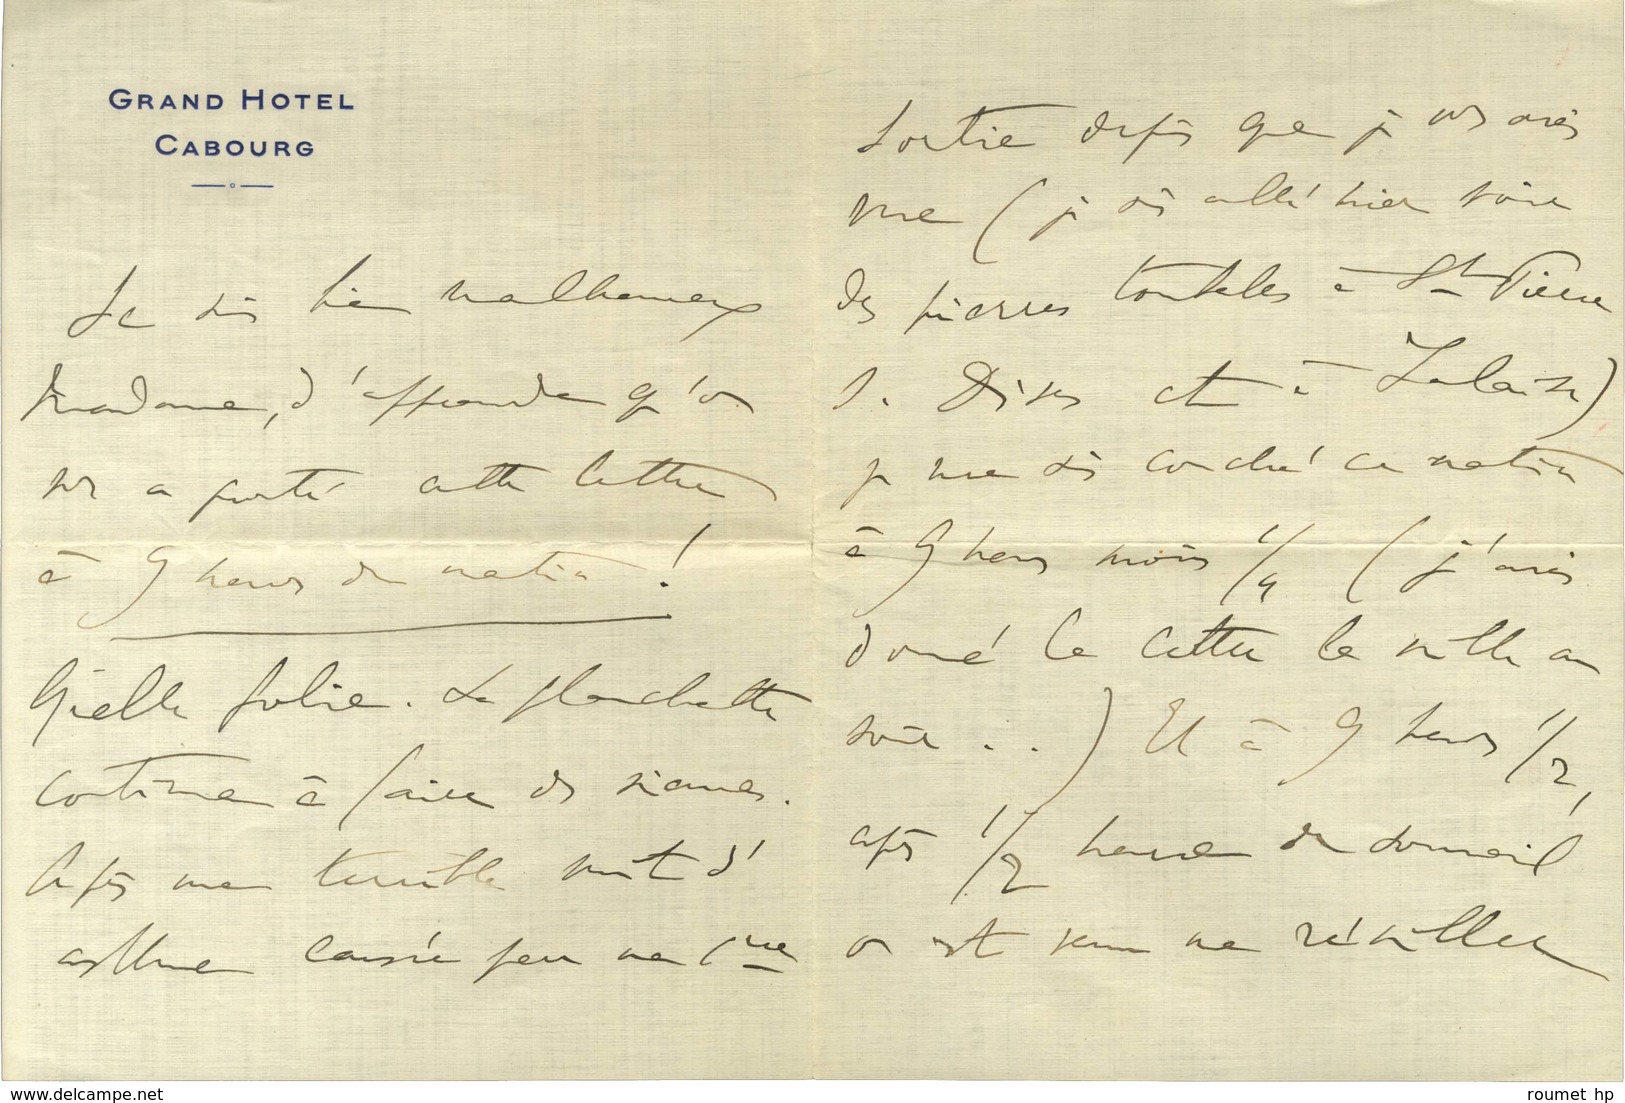 GRAND HOTEL
CABOURG
Je suis bien malheureux
Madame, d'apprendre qu'on
vous a porté cette lettre
à 9 heures du matin !
Quelle folie. La planchette
continue à faire des siennes.
Après une terrible nuit d'
asthme causée par ma 1ère
sortie depuis que je vous avais
vue (je suis allé hier soir
des pierres tombales à St Pierre
s. Dives et à Falaise)
je me suis couché ce matin
à 9 heures moins 1/4 (j'avais
donné la lettre la veille au
soir . . ) Et à 9 heures 1/2,
après 1/2 heure de sommeil
on est venu me réveiller
www.delcampe.net
roumet hp